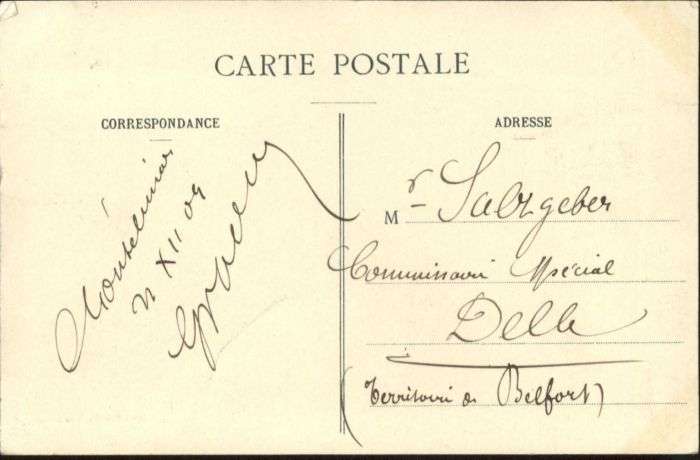 CARTE POSTALE
CORRESPONDANCE
Montelimar
XII 09
ADRESSE
Mr Salzgeber
Commissaire Spécial
Delle
(Territoire de Belfort)